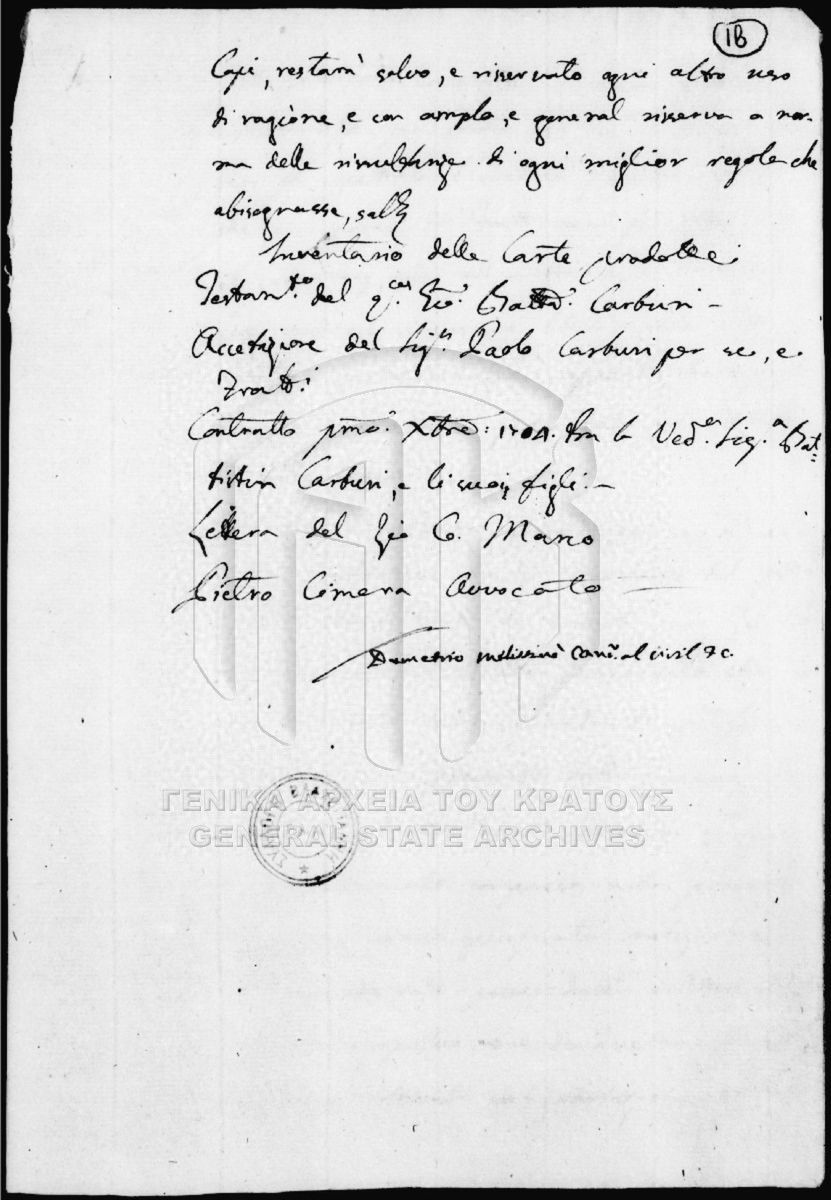 1B
Capi, restarà salvo, e riservato ogni altro uso
di ragione, e con ampla, e general riserva a nor-
ma delle di ogni miglior regola che
abisognasse, salvi
Inventario delle Carte prodotte
Testam.to del q. Co. Batta. Carburi -
Accetazione del Sig.r Paolo Carburi per se, e
Fratt.i
Contratto pmo. Xbre: tra la Ved.a Sig.a Bat=
tistin Carburi, e li suoi figli -
Lettera del Zio Co. Marco
Pietro Cimera Avvocato
Demetrio Melissinò Canc. al civil &c.
ΓΕΝΙΚΑ ΑΡΧΕΙΑ ΤΟΥ ΚΡΑΤΟΥΣ
GENERAL STATE ARCHIVES